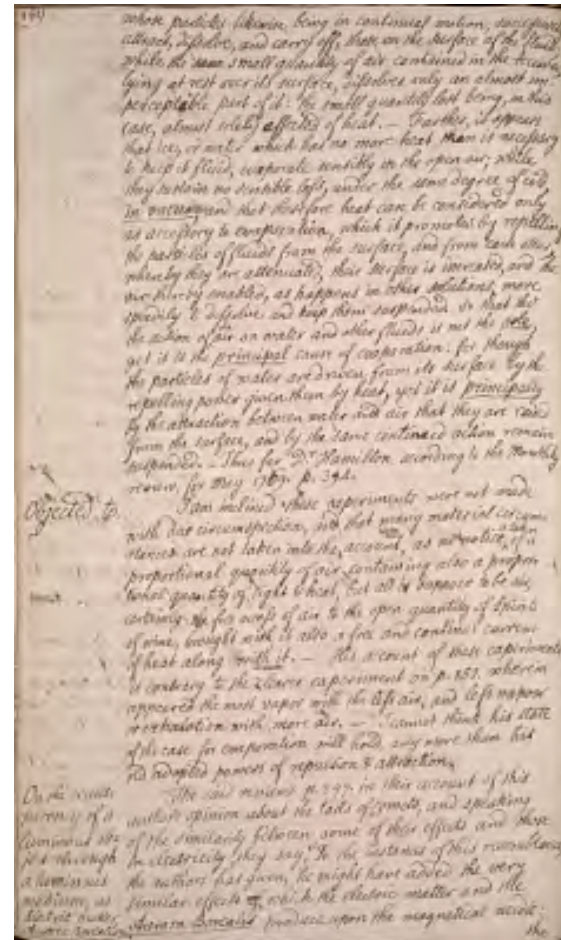 whose particles likewise, being in continual motion, successively
attract, dissolve, and carry off, those on the surface of the fluid
while the same small quantity of air combined in the
lying at rest over its surface, dissolves only an almost im-
perceptable part of it: the small quantity lost being, in this
case, almost solely effected of heat. — Farther, it appears
that ice, or water which has no more heat than is necessary
to keep it fluid, evaporate sensibly in the open air; while
they sustain no sensible loss, under the same degree of cold
in vacuum and that therefore heat can be considered only
as accessory to evaporation, which it promotes by repelling
the particles of fluids from the surface, and from each other
whereby they are attenuated, their surface is increased, and the
air thereby enabled, as happens in other solutions, more
speedily to dissolve and keep them suspended. so that tho'
the action of air on water and other fluids is not the sole,
yet it is the principal cause of evaporation: for though
the particles of water are driven from its surface by the
repelling power given them by heat, yet it is principally
by the attraction between water and air that they are raised
from the surface, and by the same continued action remain
suspended. — Thus far Dr. Hamilton according to the Monthly
review, for May 1767. p. 344.
Objected to.
I am inclined these experiments were not made
with due circumspection, and that many material circum
stances are not taken into the account, as no notice of a
proportional quantity of air containing also a propor
tional quantity of light & heat,
the free access of air to the open quantity of spirits
of wine, brought with it also a free and continual current
of heat along with it. — His account of these experiments
is contrary to the clearer experiment on p. 257. wherein
appeared the most vapor with the less air, and less vapor
or exhalation with more air. — I cannot think his state
of the case for evaporation will hold, any more than his
old adopted powers of repulsion & attraction.
On the
of a
luminous
through
a luminous
medium, as
electric matter,
The said reviews p. 347. in their account of this
authors opinion about the tails of comets, and speaking
of the similarity between some of their effects and those
in electricity they say, "To the instances of this resemblance
the authors has given, he might have added the very
similar effects which the electric matter and the
Aurora Borealis produce upon the magnetical needle:
the